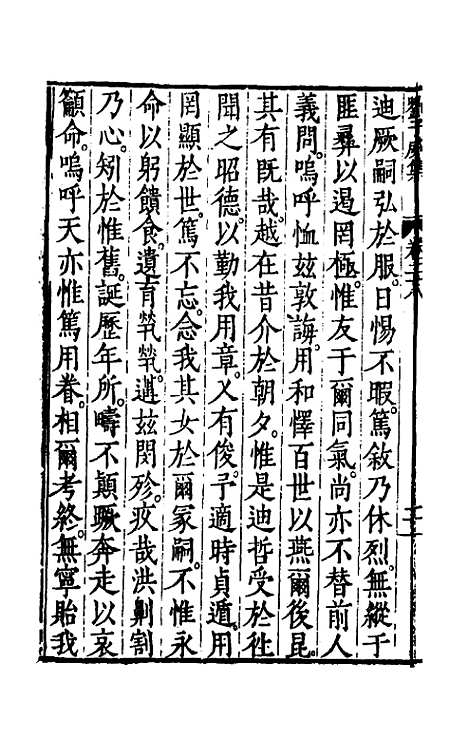 迪厥嗣弘於服。日惕不暇。篤敘乃休烈。無縱于
匪彞以遏罔極。惟友于爾同氣。尚亦不替前人
義問。嗚呼恤茲敦誨。用和懌百世以燕爾後昆。
其有旣哉。越在昔介於朝夕。惟是迪哲受於徃
聞之昭德。以勤我用章。又有俊。子適時貞遁。用
罔顯於世。篤不忘。念我其女於爾冢嗣。不惟永
命以躬饋食。遺育煢煢。遘茲閔殄。疚哉洪劓割
乃心。矧於惟舊。誕歷年所。疇不顛蹶奔走以哀
籲命。嗚呼天亦惟篤用眷。相爾考終。無寧貽我